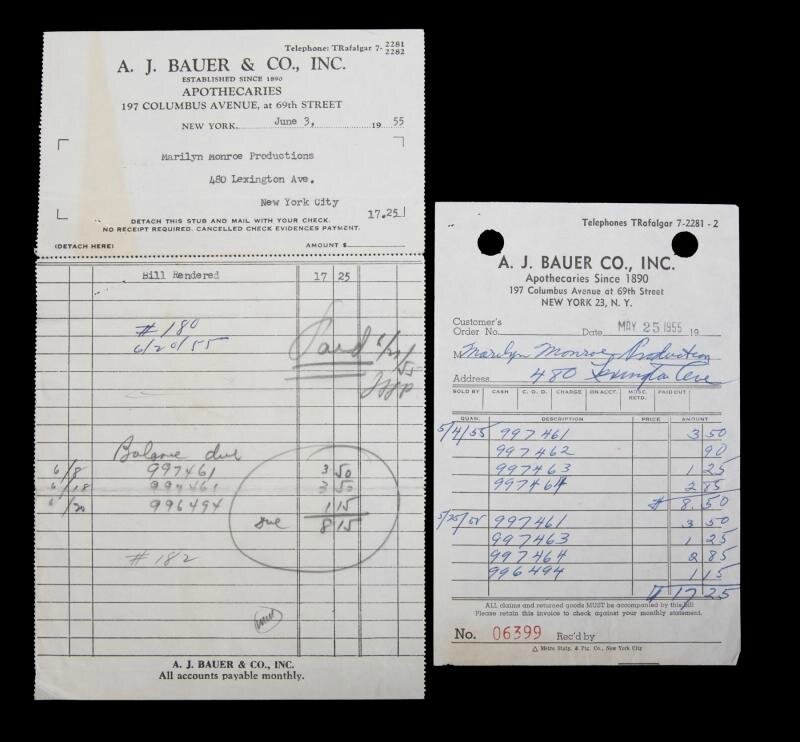 Telephone: TRafalgar 7- 2281
2282
A. J. BAUER & CO., INC.
ESTABLISHED SINCE 1890
APOTHECARIES
197 COLUMBUS AVENUE, at 69th STREET
NEW YORK. June 3, 19 55
Marilyn Monroe Productions
480 Lexington Ave.
New York City
17.25
DETACH THIS STUB AND MAIL WITH YOUR CHECK.
NO RECEIPT REQUIRED. CANCELLED CHECK EVIDENCES PAYMENT.
(DETACH HERE) AMOUNT $
Bill Rendered 17 25
# 180
6/20/55
Paid
Balance due
6/8 997461 3 50
6/18 997461 3 50
6/20 996494 1 15
due 8 15
# 182
A. J. BAUER & CO., INC.
All accounts payable monthly.
Telephones TRafalgar 7-2281 - 2
A. J. BAUER CO., INC.
Apothecaries Since 1890
197 Columbus Avenue at 69th Street
NEW YORK 23, N. Y.
Customer's
Order No. Date MAY 25 1955 19
M Marilyn Monroe Production
Address 480 Lexington Ave
SOLD BY CASH C. O. D. CHARGE ON ACCT. MDSE. RETD. PAID OUT
QUAN. DESCRIPTION PRICE AMOUNT
5/4/55 997461 3 50
997462 90
997463 1 25
997464 2 85
# 8.50
5/25/55 997461 3 50
997463 1 25
997464 2 85
996494 1 15
17 25
ALL claims and returned goods MUST be accompanied by this bill
Please retain this invoice to check against your monthly statement.
No. 06399 Rec'd by
Metro Staty. & Ptg. Co., New York City